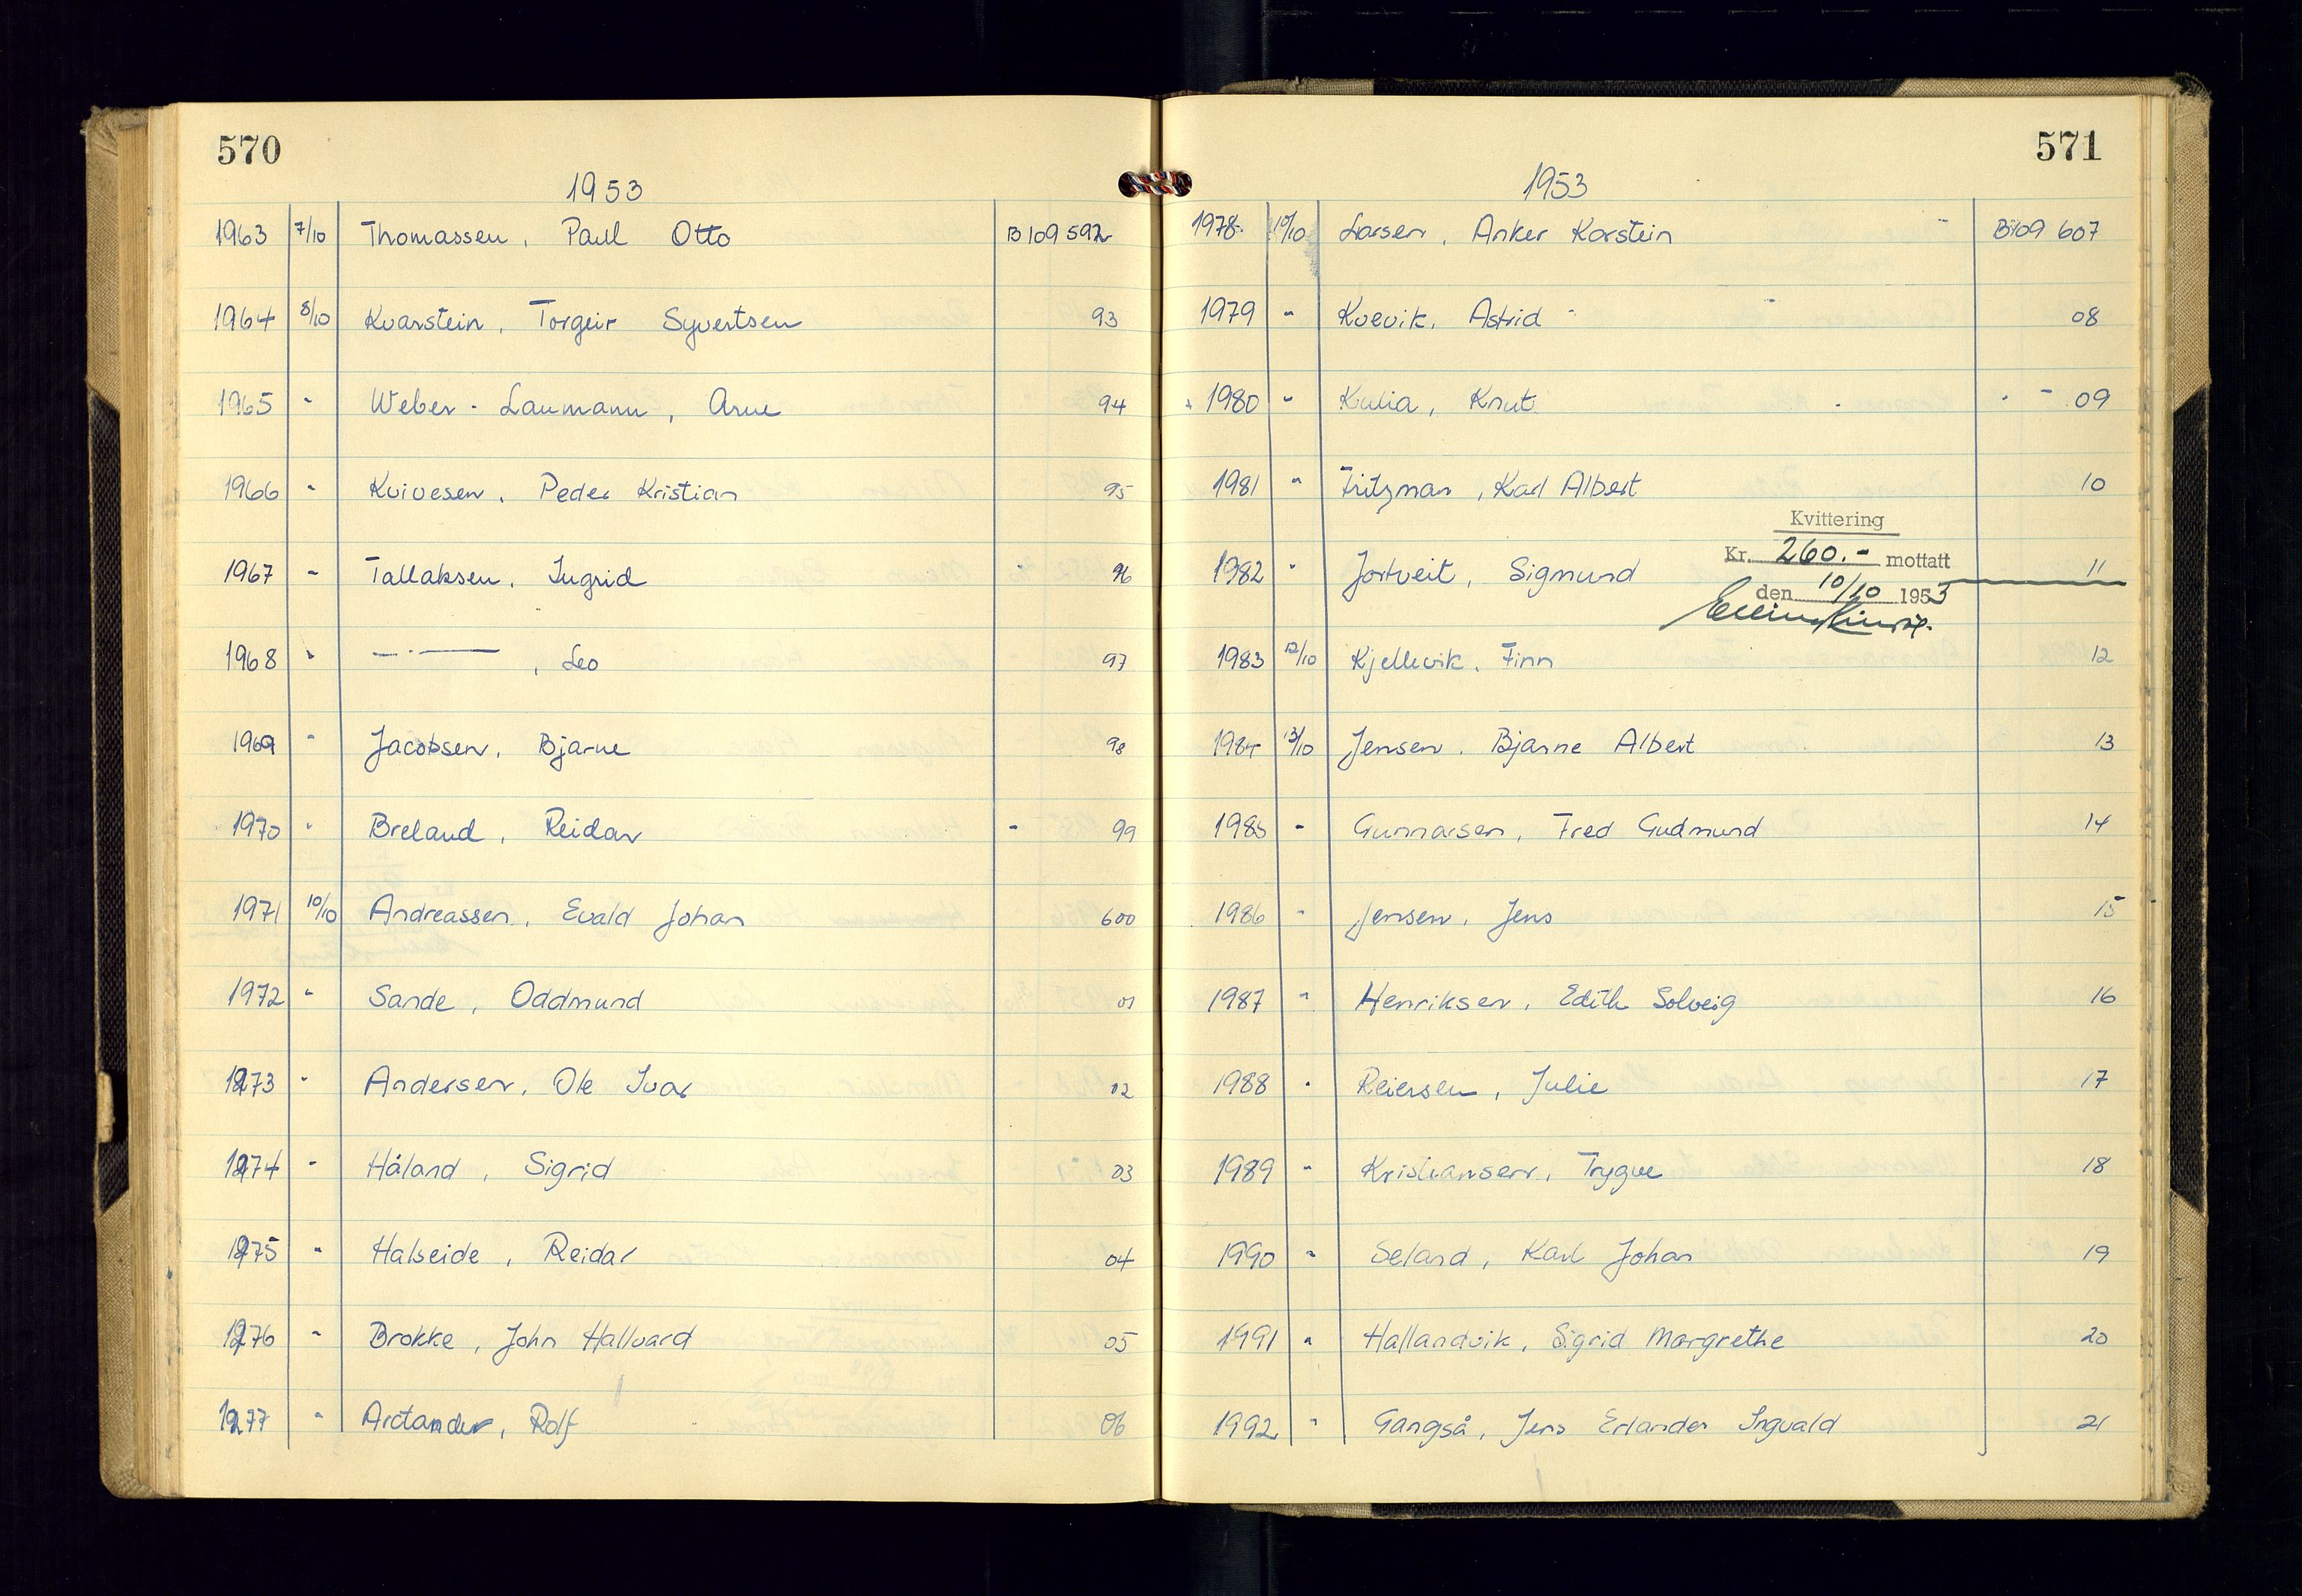 570
1953
1963 7/10 Thomassen, Paul Otto B109592
1964 8/10 Kvarstein, Torgeir Syvertsen 93
1965 " Weber-Laumann, Arne 94
1966 " Kvivesen, Peder Kristian 95
1967 " Tallaksen, Ingrid 96
1968 " —·—, Leo 97
1969 " Jacobsen, Bjarne 98
1970 " Breland, Reidar 99
1971 10/10 Andreassen, Evald Johan 600
1972 " Sande, Oddmund 01
1973 " Andersen, Ole Ivar 02
1974 " Håland, Sigrid 03
1975 " Halseide, Reidar 04
1976 " Brokke, John Hallvard 05
1977 " Arctander, Rolf 06
571
1953
1978 10/10 Larsen, Anker Karstein B109 607
1979 " Kvevik, Astrid 08
1980 " Kulia, Knut 09
1981 " Fritzman, Karl Albert 10
Kvittering
Kr. 260.- mottatt
1982 " Jortveit, Sigmund 11
den 10/10 1953
1983 12/10 Kjellevik, Finn 12
1984 13/10 Jensen, Bjarne Albert 13
1985 " Gunnarsen, Fred Gudmund 14
1986 " Jensen, Jens 15
1987 " Henriksen, Edith Solveig 16
1988 " Reiersen, Julie 17
1989 " Kristiansen, Trygve 18
1990 " Seland, Karl Johan 19
1991 " Hallandvik, Sigrid Margrethe 20
1992 " Gangså, Jens Erlander Ingvald 21